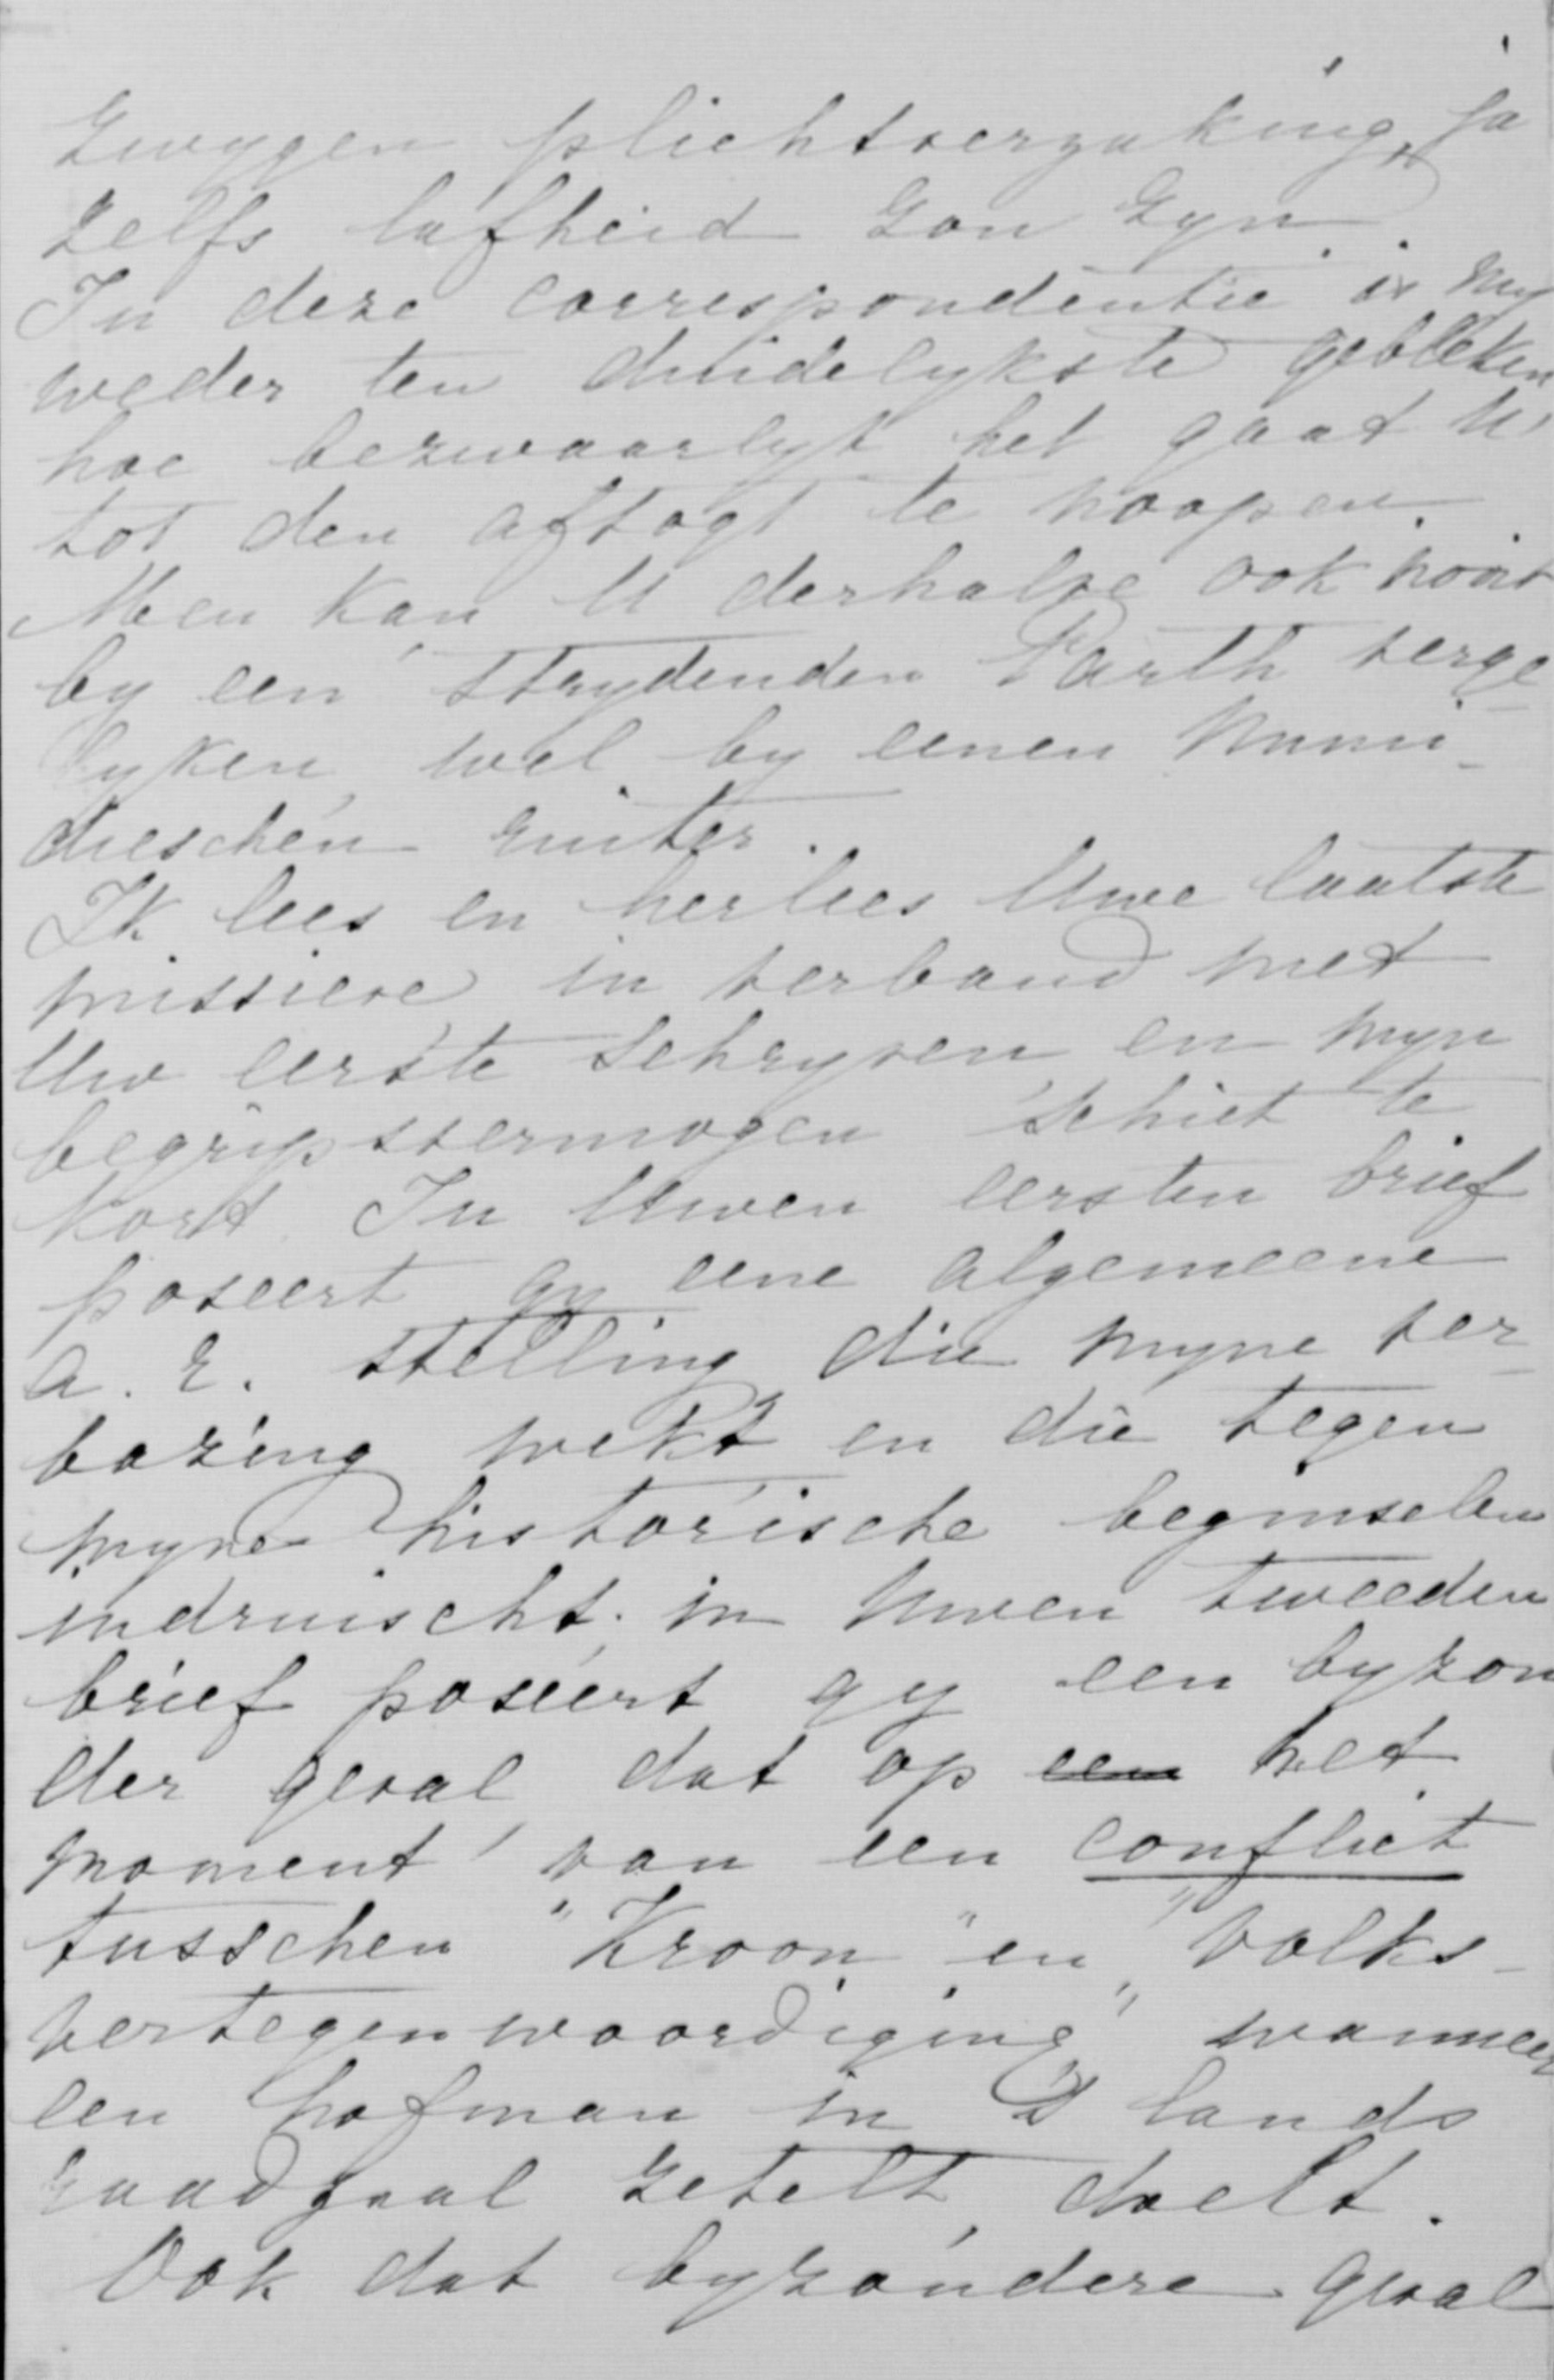 zwygen plichtverzaking, ja
zelfs lafheid zou zyn.
In deze correspondentie is my
weder ten duidelykste gebleken
hoe bezwaarlyk het gaat U
tot den aftogt te noopen.
Men kan U derhalve ook nooit
by een strydenden Parth verge-
lyken, wel by eenen Numi-
dieschen ruiter.
Ik lees en herlees Uwe laatste
missieve in verband met
Uw eerste schryven en myn
begripsvermogen schiet te
kort. In Uwen eersten brief
poseert gy eene algemeene
a. r. stelling die myne ver-
bazing wekt en die tegen
myne historische beginselen
indruischt; in Uwen tweeden
brief poseert gy een byzon
der geval dat op ~~een~~ het
moment van een conflict
tusschen "Kroon" en "Volks-
vertegenwoordiging" wanneer
een hofman in 's lands
raadzaal zetelt, doelt.
Ook dat byzondere geval